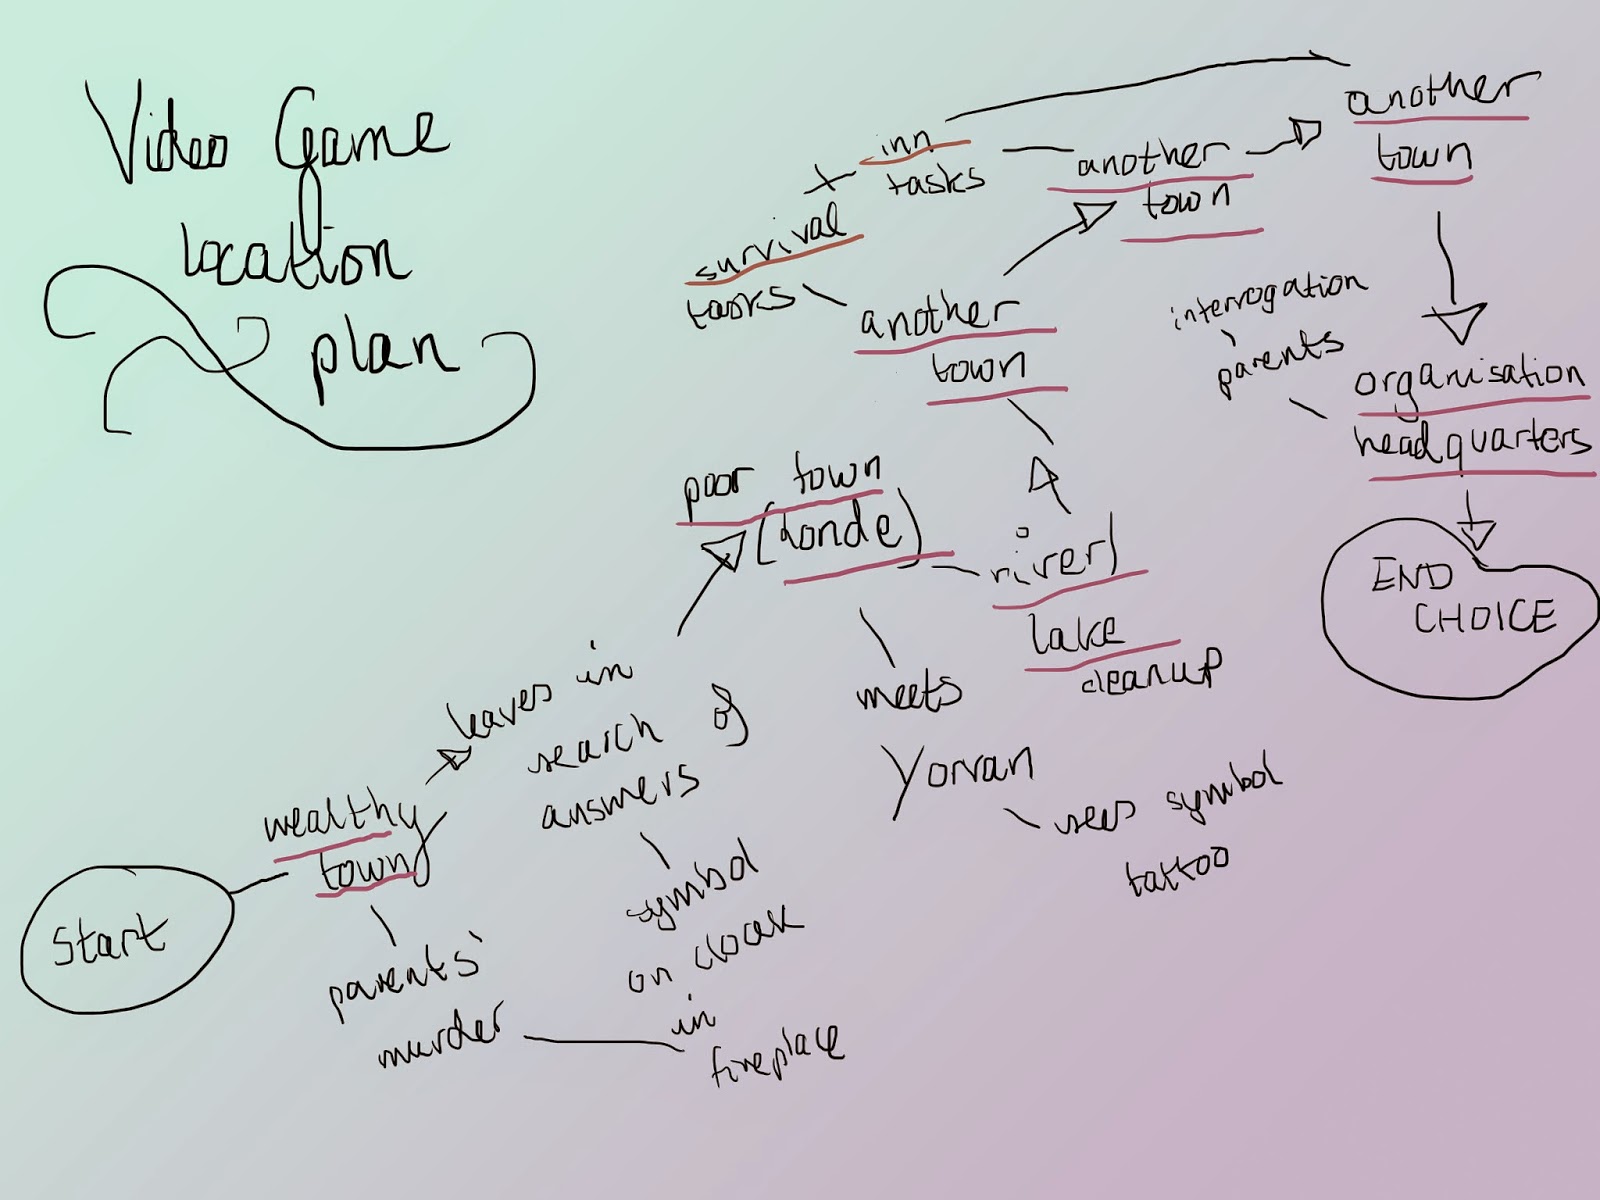 Video Game
location
plan
Start
wealthy
town
parents'
murder
leaves in
search of
answers
symbol
on cloak
in
fireplace
poor town
meets
Yorvan
sees symbol
tattoo
river/
lake
cleanup
another
town
survival
tasks
+
inn
tasks
another
town
another
town
interrogation
parents
organisation
headquarters
END
CHOICE